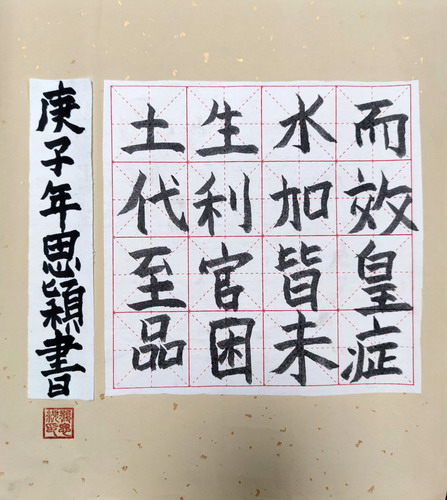 而效皇症
水加皆未
生利官困
土代至品
庚子年思穎書